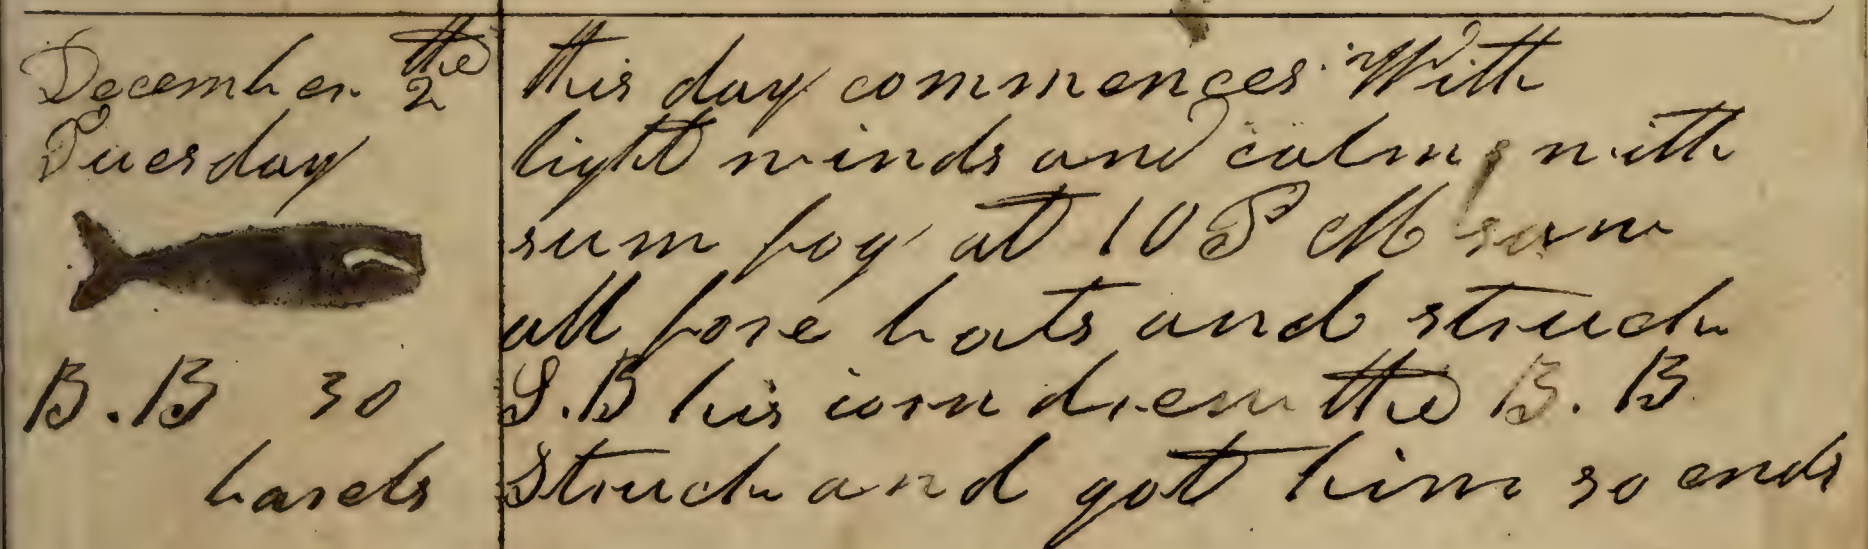 December the 2
Tuesday
B.B 30
barels
this day commences With
light winds and calms with
sum fog at 10 P M saw
all fore boats and struck
S.B his iorn drew the B.B
Struck and got him so ends